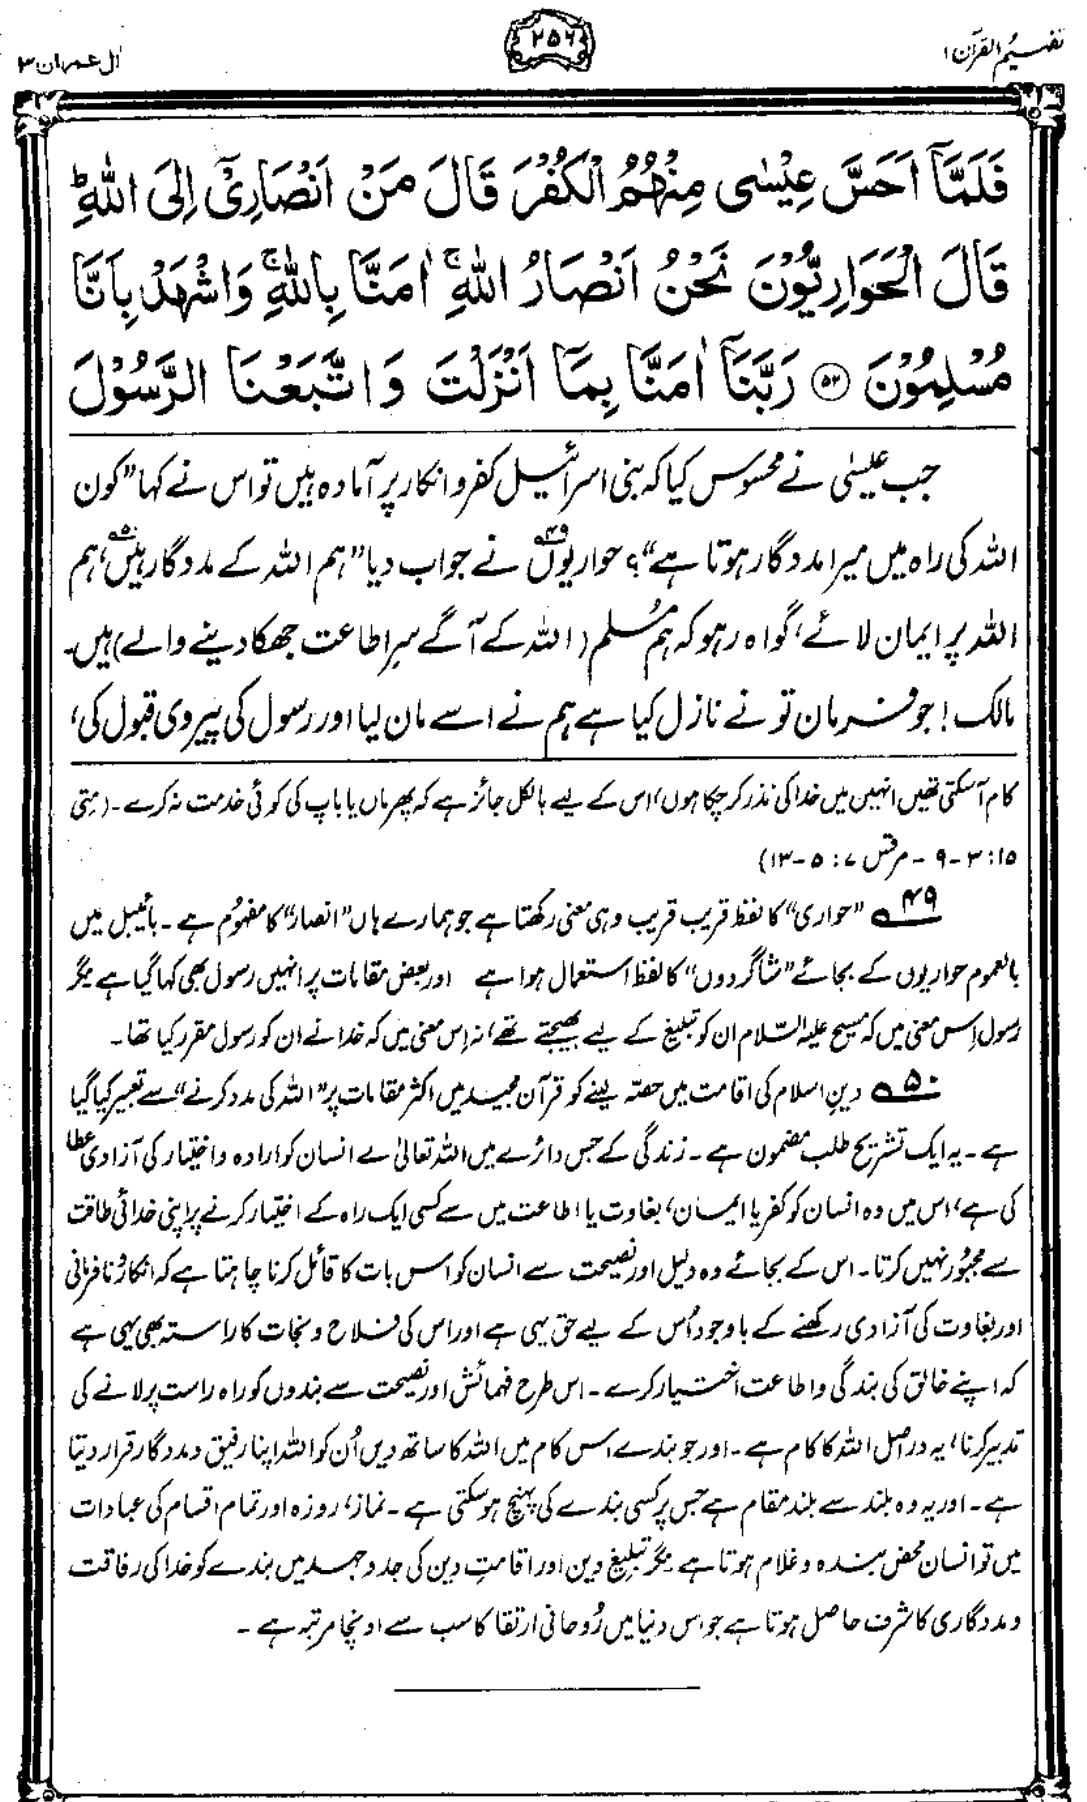 تفہیم القرآن ۱
۲۵۶
اٰل عمران ۳
فَلَمَّآ اَحَسَّ عِیْسٰی مِنْهُمُ الْكُفْرَ قَالَ مَنْ اَنْصَارِیْۤ اِلَی اللّٰهِ ؕ
قَالَ الْحَوَارِیُّوْنَ نَحْنُ اَنْصَارُ اللّٰهِ ۚ اٰمَنَّا بِاللّٰهِ ۚ وَاشْهَدْ بِاَنَّا
مُسْلِمُوْنَ ﴿۵۲﴾ رَبَّنَاۤ اٰمَنَّا بِمَاۤ اَنْزَلْتَ وَاتَّبَعْنَا الرَّسُوْلَ
جب عیسٰی نے محسوس کیا کہ بنی اسرائیل کفر و انکار پر آمادہ ہیں تو اس نے کہا ”کون
اللہ کی راہ میں میرا مددگار ہوتا ہے“؟ حواریوں۴۹ نے جواب دیا ”ہم اللہ کے مددگار ہیں۵۰، ہم
اللہ پر ایمان لائے، گواہ رہو کہ ہم مُسلم (اللہ کے آگے سرِ اطاعت جھکا دینے والے) ہیں۔
مالک! جو فرمان تو نے نازل کیا ہے ہم نے اسے مان لیا اور رسول کی پیروی قبول کی،
کام آسکتی تھیں انہیں میں خدا کی نذر کر چکا ہوں، اس کے لیے بالکل جائز ہے کہ پھر ماں یا باپ کی کوئی خدمت نہ کرے۔ (متی
۱۵: ۳-۹ - مرقس ۷: ۵-۱۳)
۴۹ ”حواری“ کا لفظ قریب قریب وہی معنی رکھتا ہے جو ہمارے ہاں ”انصار“ کا مفہوم ہے۔ بائیبل میں
بالعموم حواریوں کے بجائے ”شاگردوں“ کا لفظ استعمال ہوا ہے اور بعض مقامات پر انہیں رسول بھی کہا گیا ہے مگر
رسول اِس معنی میں کہ مسیح علیہ السّلام ان کو تبلیغ کے لیے بھیجتے تھے، نہ اِس معنی میں کہ خدا نے ان کو رسول مقرر کیا تھا۔
۵۰ دینِ اسلام کی اقامت میں حصّہ لینے کو قرآن مجید میں اکثر مقامات پر ”اللہ کی مدد کرنے“ سے تعبیر کیا گیا
ہے۔ یہ ایک تشریح طلب مضمون ہے۔ زندگی کے جس دائرے میں اللہ تعالیٰ نے انسان کو ارادہ و اختیار کی آزادی عطا
کی ہے، اس میں وہ انسان کو کفر یا ایمان، بغاوت یا اطاعت میں سے کسی ایک راہ کے اختیار کرنے پر اپنی خدائی طاقت
سے مجبُور نہیں کرتا۔ اس کے بجائے وہ دلیل اور نصیحت سے انسان کو اس بات کا قائل کرنا چاہتا ہے کہ انکار و نافرمانی
اور بغاوت کی آزادی رکھنے کے باوجود اُس کے لیے حق یہی ہے اور اس کی فلاح و نجات کا راستہ بھی یہی ہے
کہ اپنے خالق کی بندگی و اطاعت اختیار کرے۔ اس طرح فہمائش اور نصیحت سے بندوں کو راہ راست پر لانے کی
تدبیر کرنا، یہ دراصل اللہ کا کام ہے۔ اور جو بندے اس کام میں اللہ کا ساتھ دیں اُن کو اللہ اپنا رفیق و مددگار قرار دیتا
ہے۔ اور یہ وہ بلند سے بلند مقام ہے جس پر کسی بندے کی پہنچ ہوسکتی ہے۔ نماز، روزہ اور تمام اقسام کی عبادات
میں تو انسان محض بندہ و غلام ہوتا ہے مگر تبلیغِ دین اور اقامتِ دین کی جدوجہد میں بندے کو خدا کی رفاقت
و مددگاری کا شرف حاصل ہوتا ہے جو اس دنیا میں رُوحانی ارتقا کا سب سے اونچا مرتبہ ہے۔